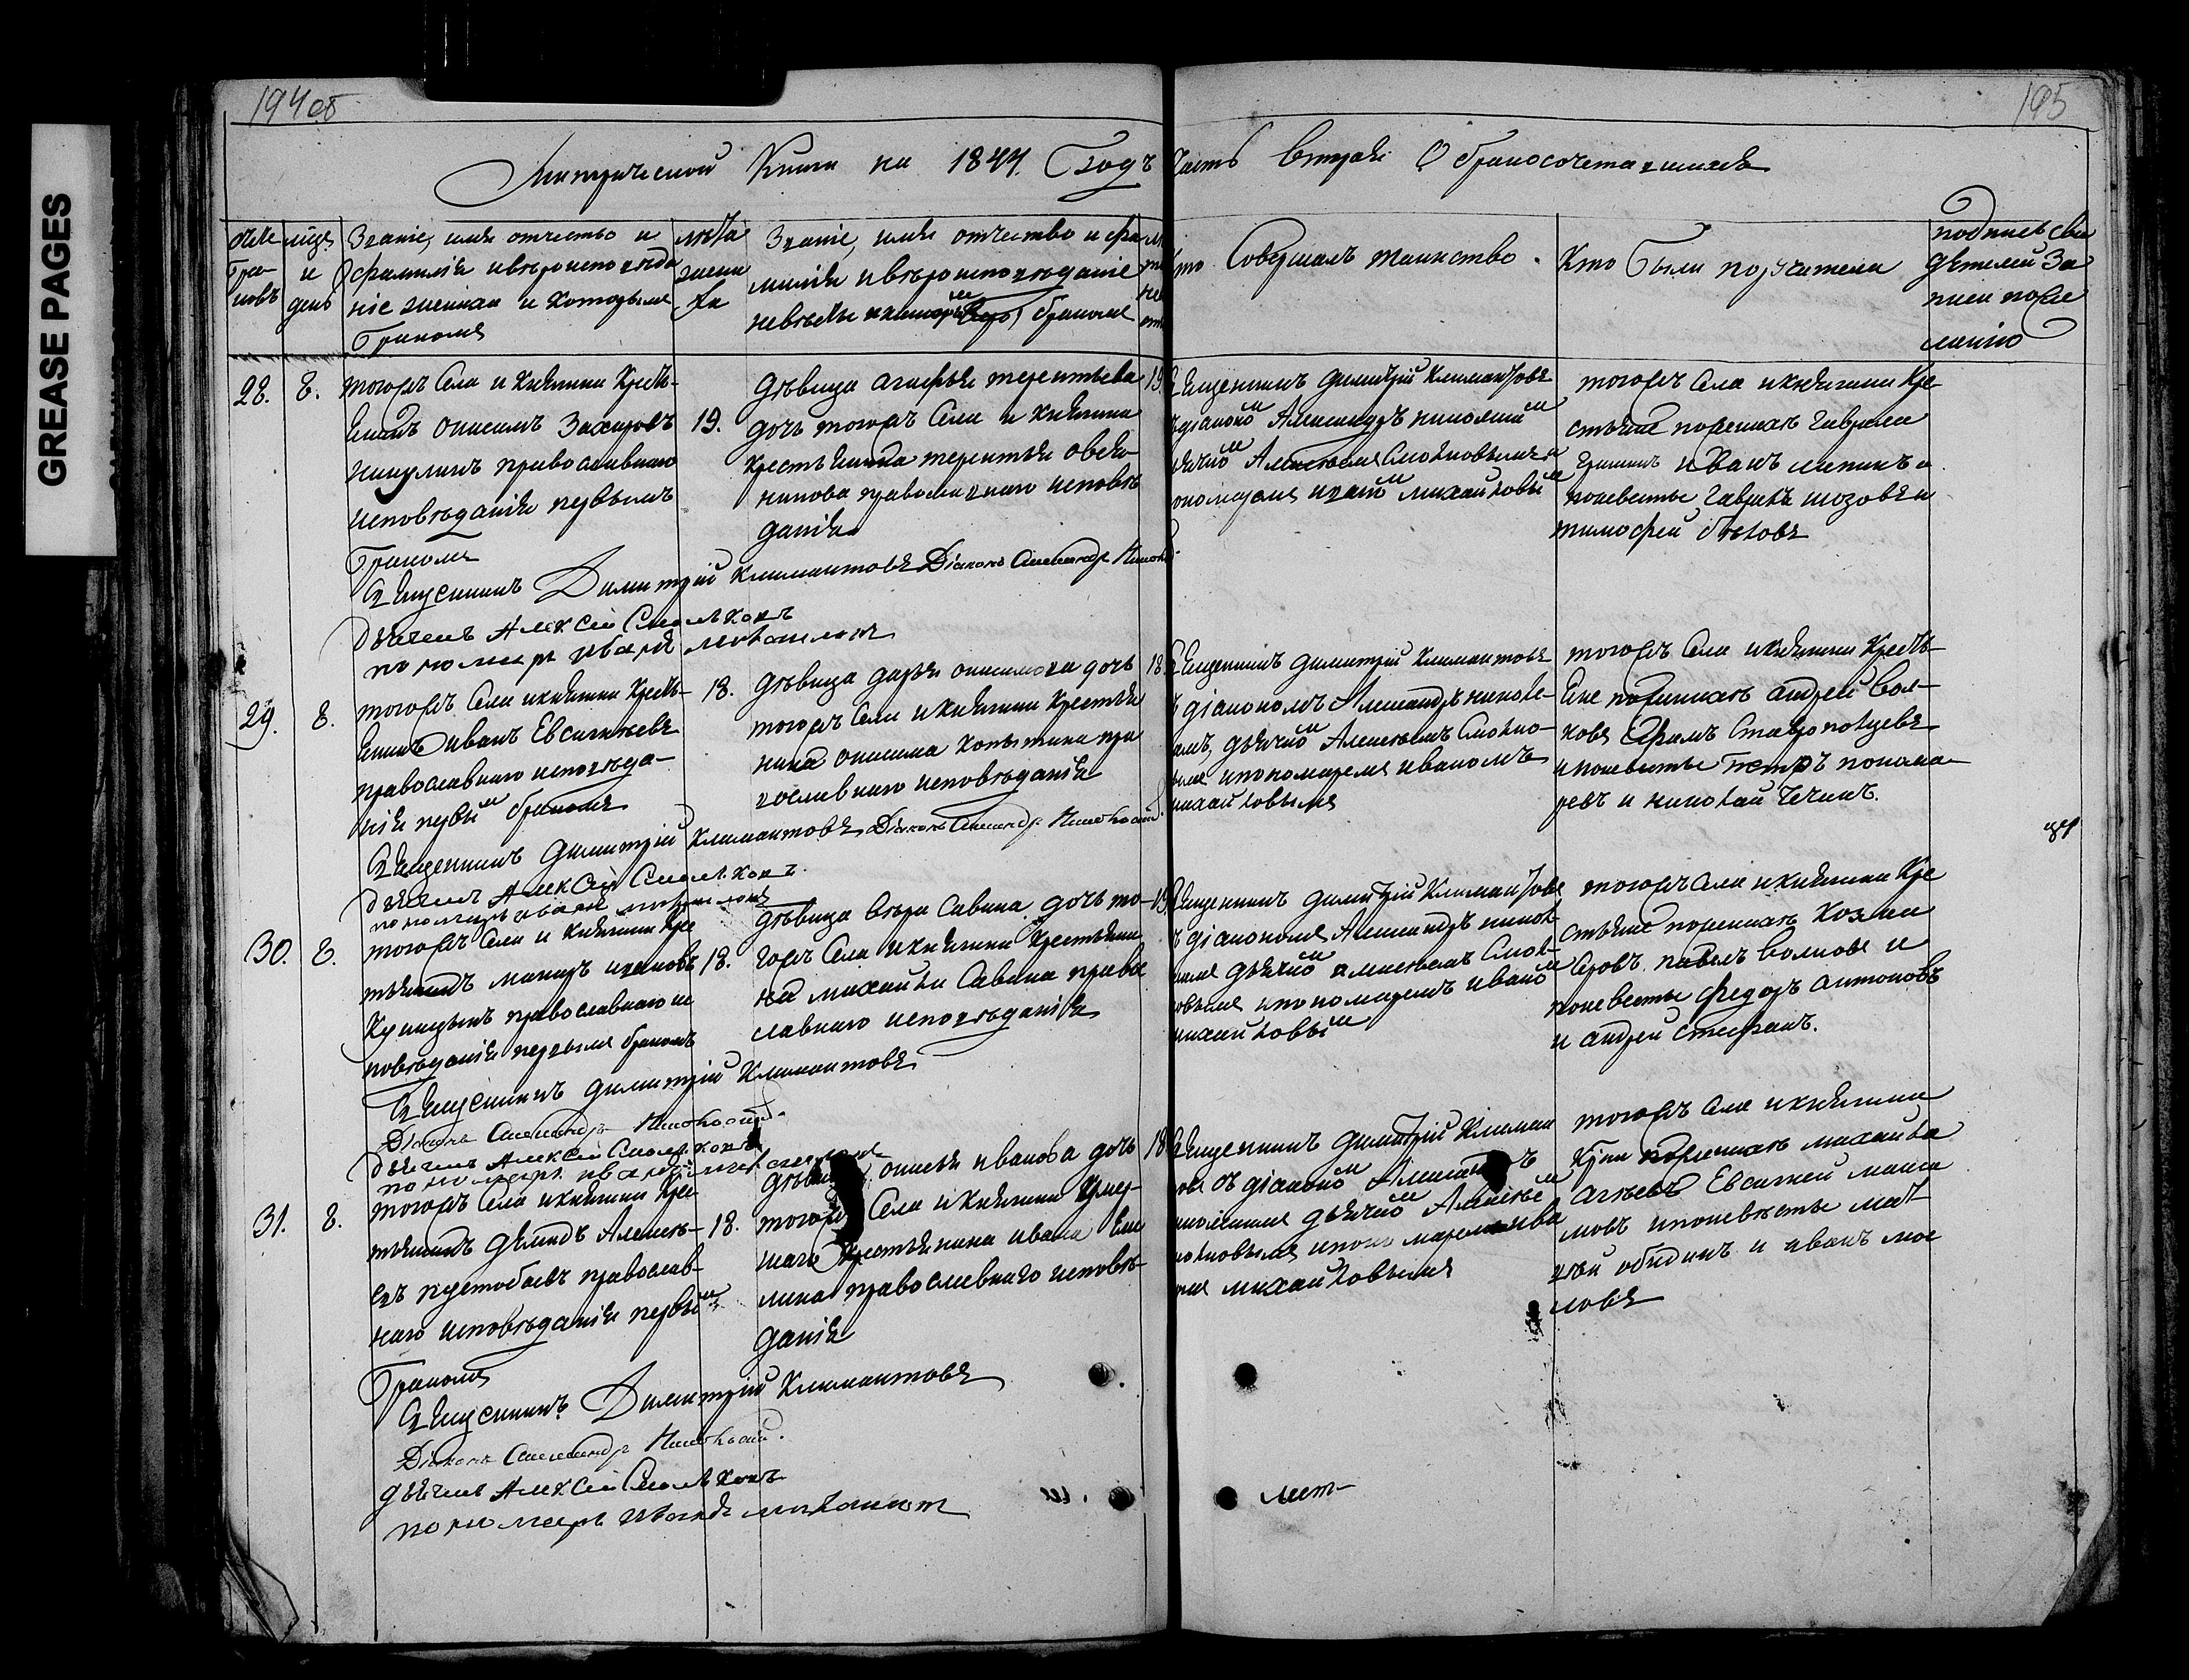 GREASE PAGES
194об
195
Метрической Книги на 1844. Годъ Часть вторая О бракосочетавшихся
счетъ браковъ
мѣсяцъ и день
Званіе, имя отчество и
фамилія и вѣроисповѣда
ніе жениха и которымъ
бракомъ
лѣта
жени
ха
Званіе, имя отчество и фа
милія и вѣроисповѣданіе
невѣсты и которымъ бракомъ
кто Совершалъ таинство.
Кто были поручители
подпись сви
дѣтелей За
писи по же
ланію
28.
8.
тогожъ Села Княгини Кресть-
янинъ Онисимъ Захаровъ
Никулинъ православнаго
исповѣданія первымъ
бракомъ
19.
дѣвица агафья терентьева
дочь тогожъ Села и Княгини
крестьянина терентья овчи-
никова православнаго исповѣ
данія
19
Священникъ Димитрій Климантовъ
съ діакономъ Александръ николаи
дьячкомъ Алексѣемъ Смолковымъ и
пономаремъ иваномъ михайловымъ
тогожъ Села и княгини Кре
стьяне по женихѣ Гаврила
Гришинъ Иванъ лапинъ а
по невѣсте Гаврилъ
тимофей бѣловъ
Священникъ Димитрий Климантовъ Діаконъ Александръ Николь
дьячекъ Алексей Смолковъ
пономарь иванъ михаиловъ
29.
8.
тогожъ Села и княгини Кресть-
янинъ иванъ Евсигнѣевъ
православнаго исповѣда-
нія первымъ бракомъ
18.
дѣвица дарья онисимова дочь
тогожъ Села и княгини Крестья
нина онисима копытина пра
вославнаго исповѣданія
18.
Священникъ Димитрій Климантовъ
съ діакономъ Александръ николь-
дьячкомъ Алексѣемъ Смолко-
вымъ и пономаремъ иваномъ
михайловымъ
тогожъ Села и княгини Кресть-
яне по женихѣ андрей Вол-
ковъ Ефимъ Ставропольцевъ
и по невѣсте Петръ понома-
ревъ и николай Чечинъ.
Священникъ Димитрій Климантовъ Діаконъ Александръ Никольскій.
дьячекъ Алексей Смолковъ.
пономарь иванъ михаиловъ
30.
8.
тогожъ Села и Княгини Кре
стьянинъ макаръ ивановъ
Куницынъ православнаго ис
повѣданія первымъ бракомъ
18.
дѣвица вѣра Савина дочь то-
гожъ Села и княгини Крестьяни
на михайлы Савина право
славнаго исповѣданія
19
Священникъ Димитрій Климантовъ
съ діакономъ Александръ николь-
дьячкомъ алексѣемъ Смол-
ковымъ и пономаремъ иваномъ
михайловымъ
тогожъ Села и княгини Кре
стьяне по женихѣ Козма
Серовъ павелъ волковъ и
по невѣсте Федоръ антоновъ
и андрей Стефанъ.
Священникъ Димитрій Климантовъ
Діаконъ Александръ Никольскій.
дьячекъ Алексей Смолковъ
пономарь иванъ михаиловъ
31.
8.
тогожъ Села и княгини Кре-
стьянинъ Демидъ Алексѣ-
евъ пустобаевъ православ-
наго исповѣданія первымъ
бракомъ
18.
дѣвица онисья иванова дочь
тогожъ Села и княгини умер-
шаго Крестьянина ивана Ем
лина православнаго исповѣ-
данія
18
Священникъ Димитрій Климан
товъ съ діакономъ Александръ
никольскимъ дьячкомъ Алексѣемъ
Смолковымъ и пономаремъ ива
номъ михайловымъ
тогожъ Села и княгини
Кре по женихѣ михаила
Агѣевъ Евсигней макси
мовъ и по невѣсте мат
вей обидинъ и иванъ мое
ловъ
Священникъ Димитрій Климантовъ
Діаконъ Александръ Никольскій.
дьячекъ Алексей Смолковъ
пономарь иванъ михаиловъ
лист-